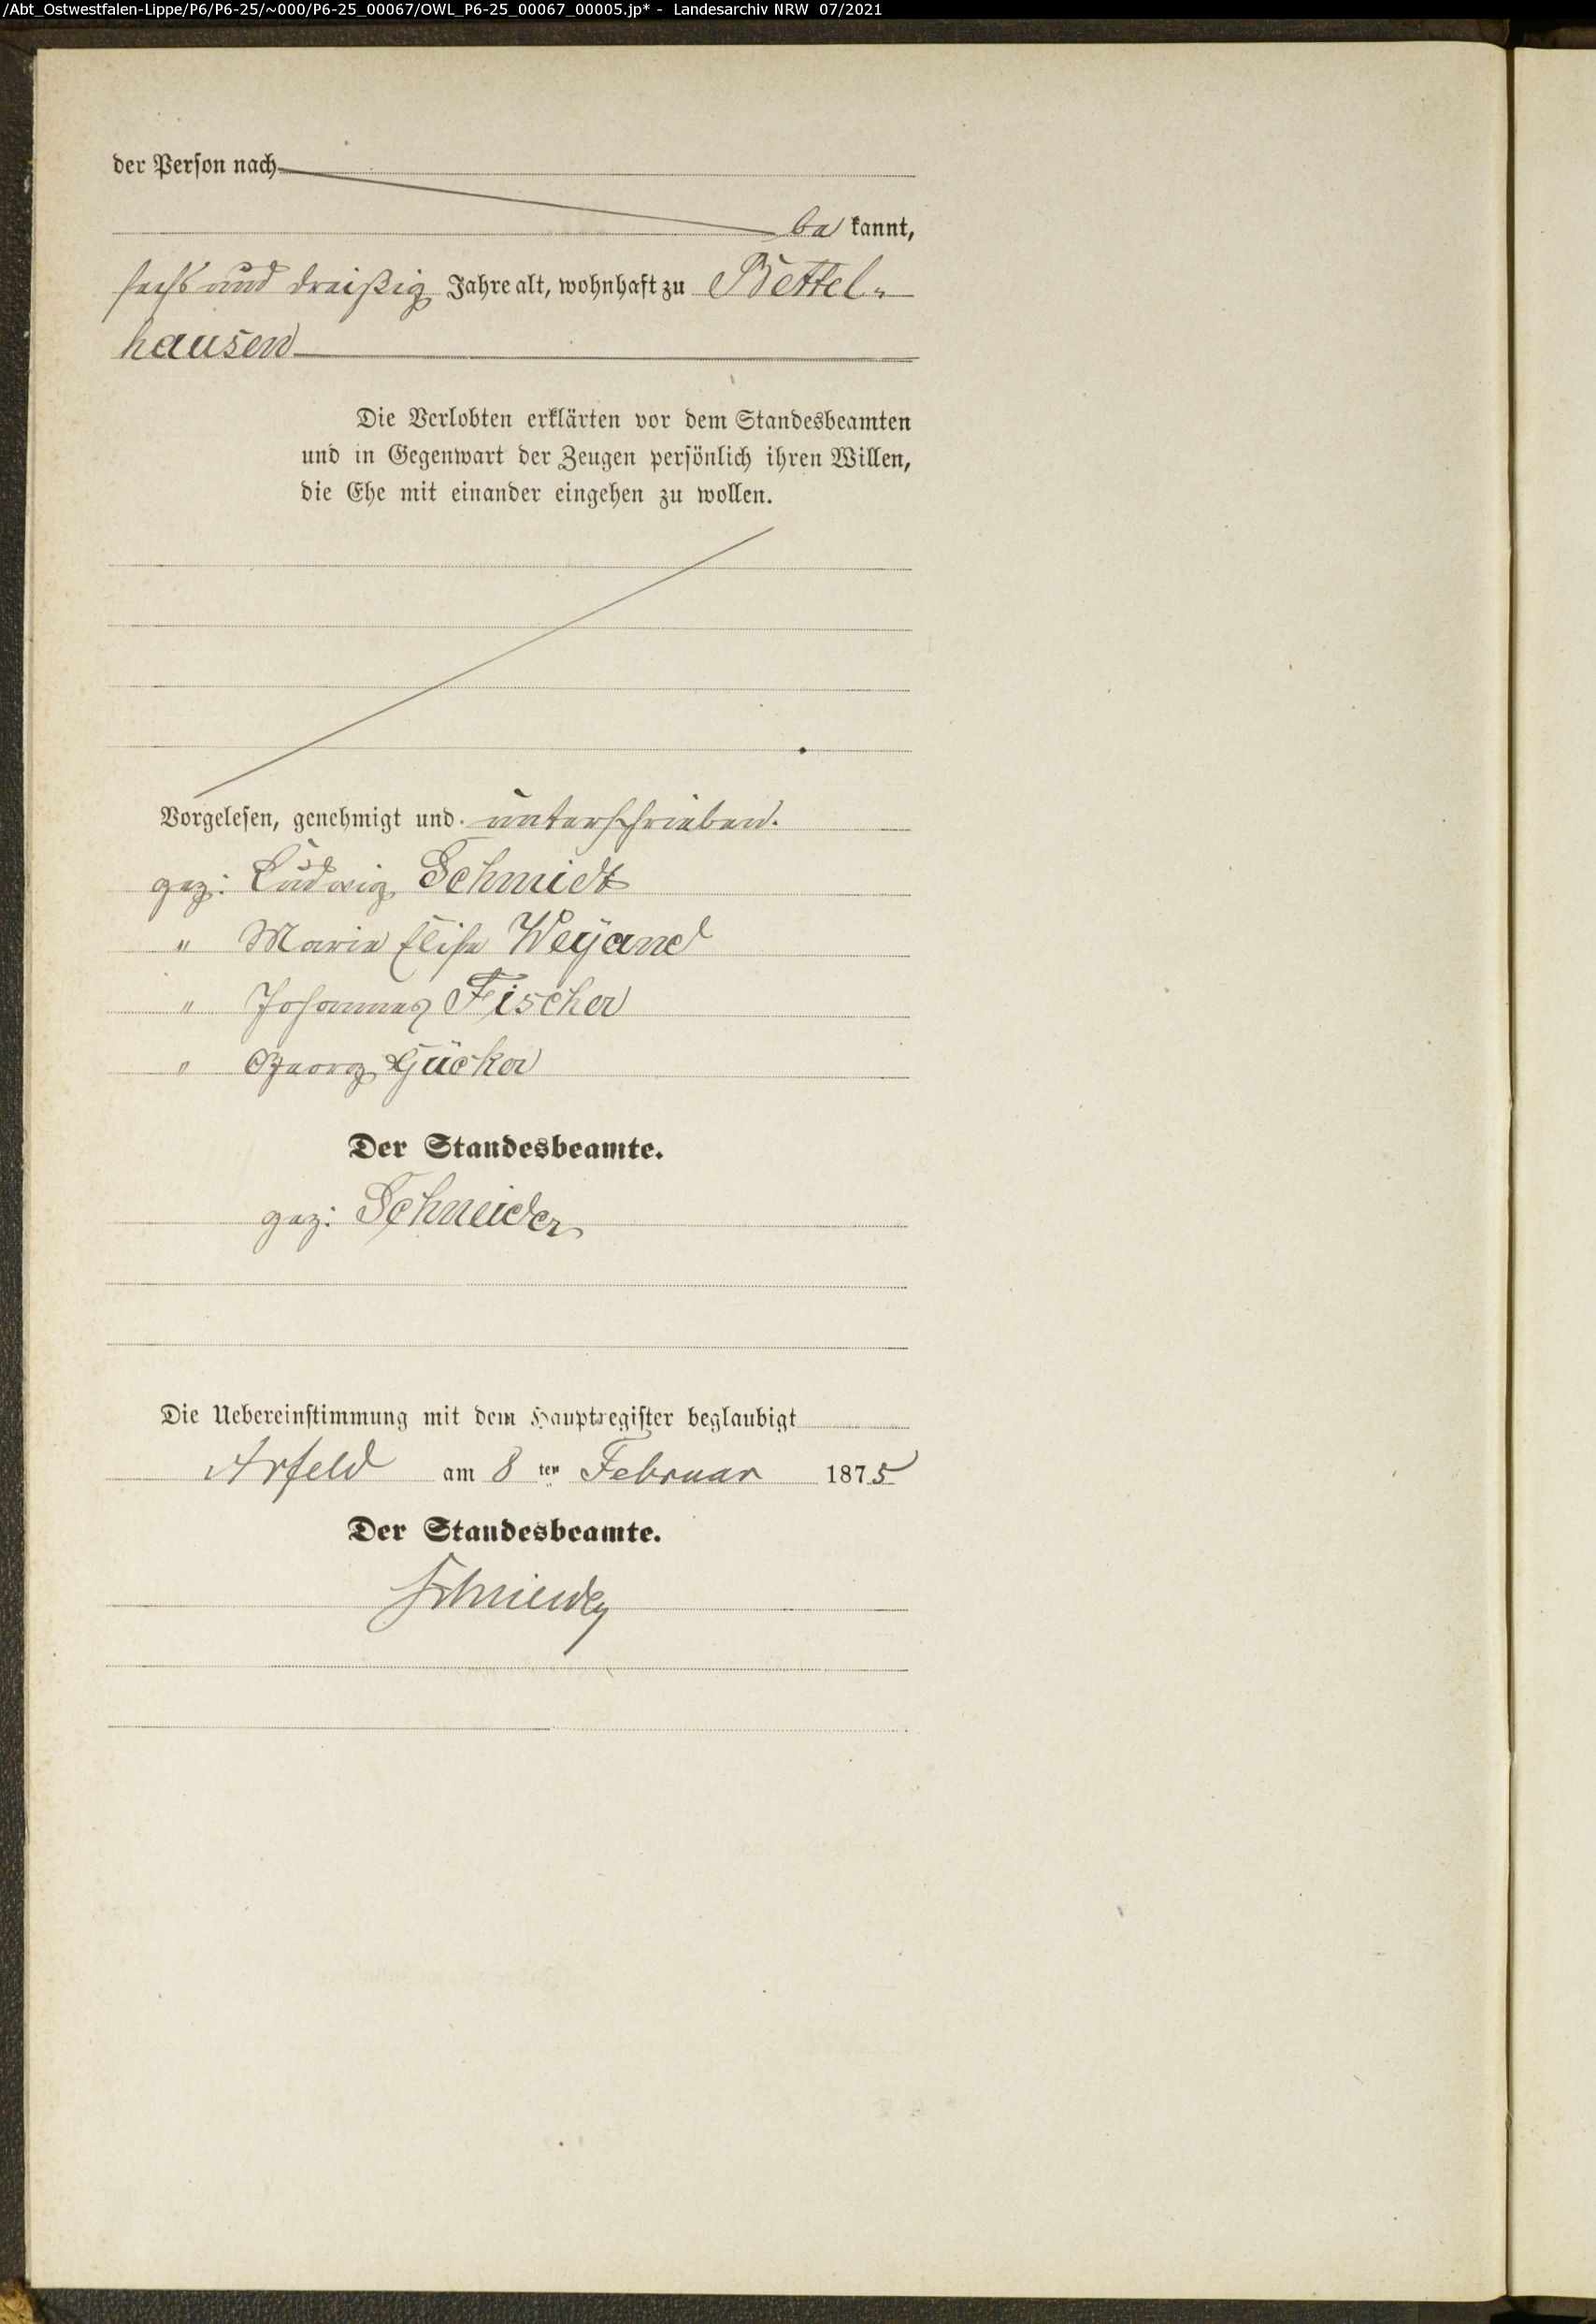 /Abt_Ostwestfalen-Lippe/P6/P6-25/~000/P6-25_00067/OWL_P6-25_00067_00005.jp* - Landesarchiv NRW 07/2021
der Person nach
be kannt,
sechs und dreißig Jahre alt, wohnhaft zu Bettel-
hausen
Die Verlobten erklärten vor dem Standesbeamten
und in Gegenwart der Zeugen persönlich ihren Willen,
die Ehe mit einander eingehen zu wollen.
Vorgelesen, genehmigt und unterschrieben.
gez: Ludwig Schmidt
" Maria Elise Weÿand
" Johannes Fischer
" Georg Gücker
Der Standesbeamte.
gez: Schneider
Die Uebereinstimmung mit dem Hauptregister beglaubigt
Arfeld am 8 ten Februar 1875
Der Standesbeamte.
Schneider